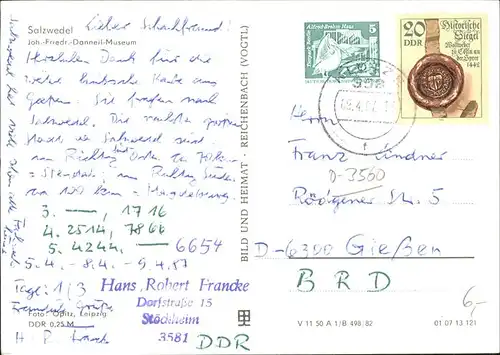 Salzwedel
Joh.-Friedr.-Danneil-Museum
Lieber Schachfreund!
Herzlichen Dank für die
weite hübsche Karte aus
Gießen. Sie fragen nach
Salzwedel. Die nächsten großen
Städte von Salzwedel sind
in Richtung Süd Osten ca 70 km
= Stendal; in Richtung Süden
ca 100 km = Magdeburg.
3. —, 1716
4. 2514, 7866
5. 4244. — 6654
5.4. - 8.4. - 9.4.87
Tage: 1/3
Freundl. Grüße
Foto: Opitz, Leipzig
DDR 0,25 M
H. R. Franck
Hans, Robert Francke
Dorfstraße 15
Stöckheim
3581 DDR
BILD UND HEIMAT · REICHENBACH (VOGTL)
Alfred-Brehm-Haus
5
DDR
20
DDR
Historische
Siegel
Herrn
Franz Lindner
D-3560
Rödgener Str. 5
D-6300 Gießen
BRD
6,-
V 11 50 A 1/B 498/82
01 07 13 121